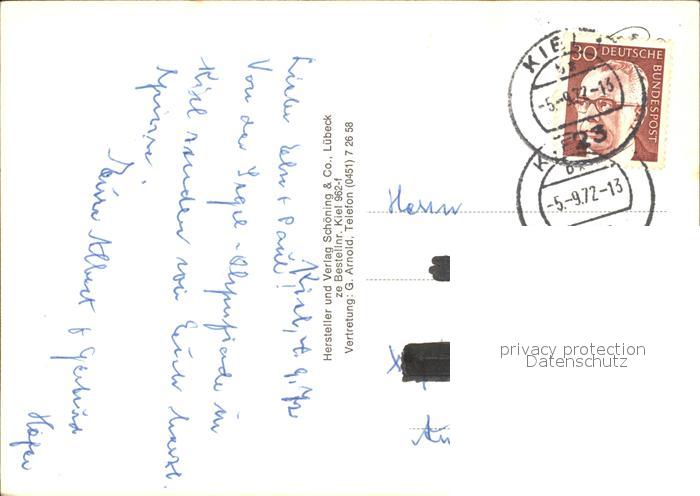 Kiel, 4.9.72
Liebe Else + Paul!
Von der Segel-Olympiade in
Kiel senden wir Euch herzl.
Grüsse.
Eure Albert + Gertrud
Höger
Hersteller und Verlag Schöning & Co., Lübeck
ze Bestellnr. Kiel 962-f
Vertretung: G. Arnold, Telefon (0451) 7 26 58
30 DEUTSCHE
BUNDESPOST
KIEL
bx
-5.-9.72-13
23
KIE
bx
-5.-9.72-13
Herrn
privacy protection
Datenschutz